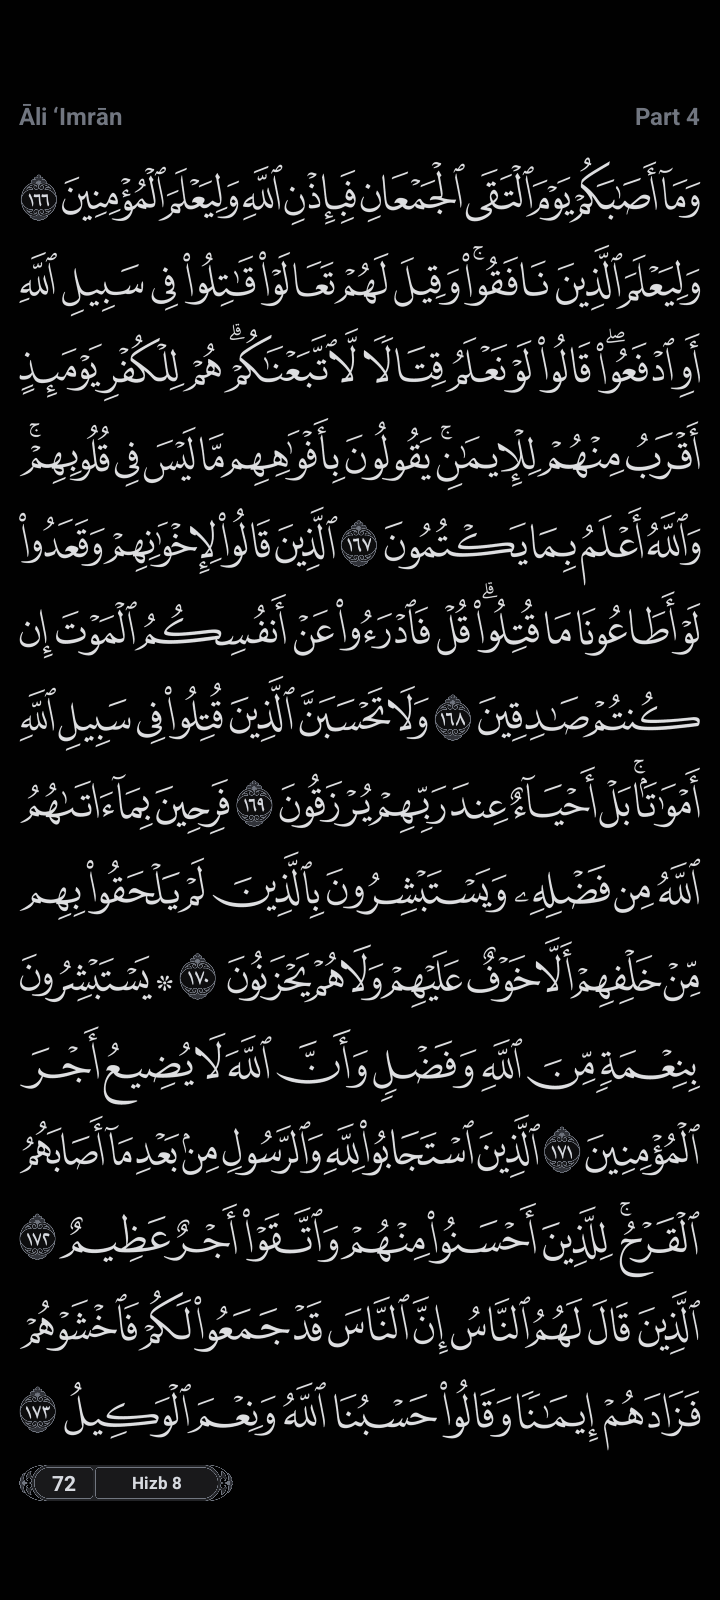 Āli ‘Imrān
Part 4
وَمَآ أَصَٰبَكُمْ يَوْمَ ٱلْتَقَى ٱلْجَمْعَانِ فَبِإِذْنِ ٱللَّهِ وَلِيَعْلَمَ ٱلْمُؤْمِنِينَ ١٦٦
وَلِيَعْلَمَ ٱلَّذِينَ نَافَقُوا۟ۚ وَقِيلَ لَهُمْ تَعَالَوْا۟ قَٰتِلُوا۟ فِى سَبِيلِ ٱللَّهِ
أَوِ ٱدْفَعُوا۟ۖ قَالُوا۟ لَوْ نَعْلَمُ قِتَالًا لَّٱتَّبَعْنَٰكُمْۗ هُمْ لِلْكُفْرِ يَوْمَئِذٍ
أَقْرَبُ مِنْهُمْ لِلْإِيمَٰنِۚ يَقُولُونَ بِأَفْوَٰهِهِم مَّا لَيْسَ فِى قُلُوبِهِمْۚ
وَٱللَّهُ أَعْلَمُ بِمَا يَكْتُمُونَ ١٦٧ ٱلَّذِينَ قَالُوا۟ لِإِخْوَٰنِهِمْ وَقَعَدُوا۟
لَوْ أَطَاعُونَا مَا قُتِلُوا۟ۗ قُلْ فَٱدْرَءُوا۟ عَنْ أَنفُسِكُمُ ٱلْمَوْتَ إِن
كُنتُمْ صَٰدِقِينَ ١٦٨ وَلَا تَحْسَبَنَّ ٱلَّذِينَ قُتِلُوا۟ فِى سَبِيلِ ٱللَّهِ
أَمْوَٰتًۢاۚ بَلْ أَحْيَآءٌ عِندَ رَبِّهِمْ يُرْزَقُونَ ١٦٩ فَرِحِينَ بِمَآ ءَاتَىٰهُمُ
ٱللَّهُ مِن فَضْلِهِۦ وَيَسْتَبْشِرُونَ بِٱلَّذِينَ لَمْ يَلْحَقُوا۟ بِهِم
مِّنْ خَلْفِهِمْ أَلَّا خَوْفٌ عَلَيْهِمْ وَلَا هُمْ يَحْزَنُونَ ١٧٠ ۞ يَسْتَبْشِرُونَ
بِنِعْمَةٍ مِّنَ ٱللَّهِ وَفَضْلٍ وَأَنَّ ٱللَّهَ لَا يُضِيعُ أَجْرَ
ٱلْمُؤْمِنِينَ ١٧١ ٱلَّذِينَ ٱسْتَجَابُوا۟ لِلَّهِ وَٱلرَّسُولِ مِنۢ بَعْدِ مَآ أَصَابَهُمُ
ٱلْقَرْحُۚ لِلَّذِينَ أَحْسَنُوا۟ مِنْهُمْ وَٱتَّقَوْا۟ أَجْرٌ عَظِيمٌ ١٧٢
ٱلَّذِينَ قَالَ لَهُمُ ٱلنَّاسُ إِنَّ ٱلنَّاسَ قَدْ جَمَعُوا۟ لَكُمْ فَٱخْشَوْهُمْ
فَزَادَهُمْ إِيمَٰنًا وَقَالُوا۟ حَسْبُنَا ٱللَّهُ وَنِعْمَ ٱلْوَكِيلُ ١٧٣
72
Hizb 8